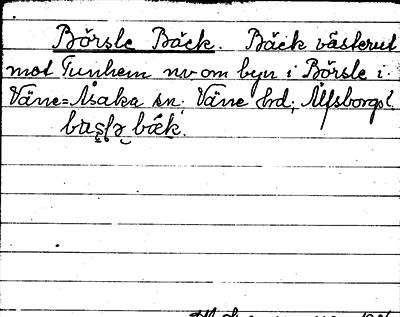 Börsle Bäck. Bäck västerut
mot Tunhem nv om byn i Börsle i
Väne-Åsaka sn; Väne hd; Älfsborgs l.